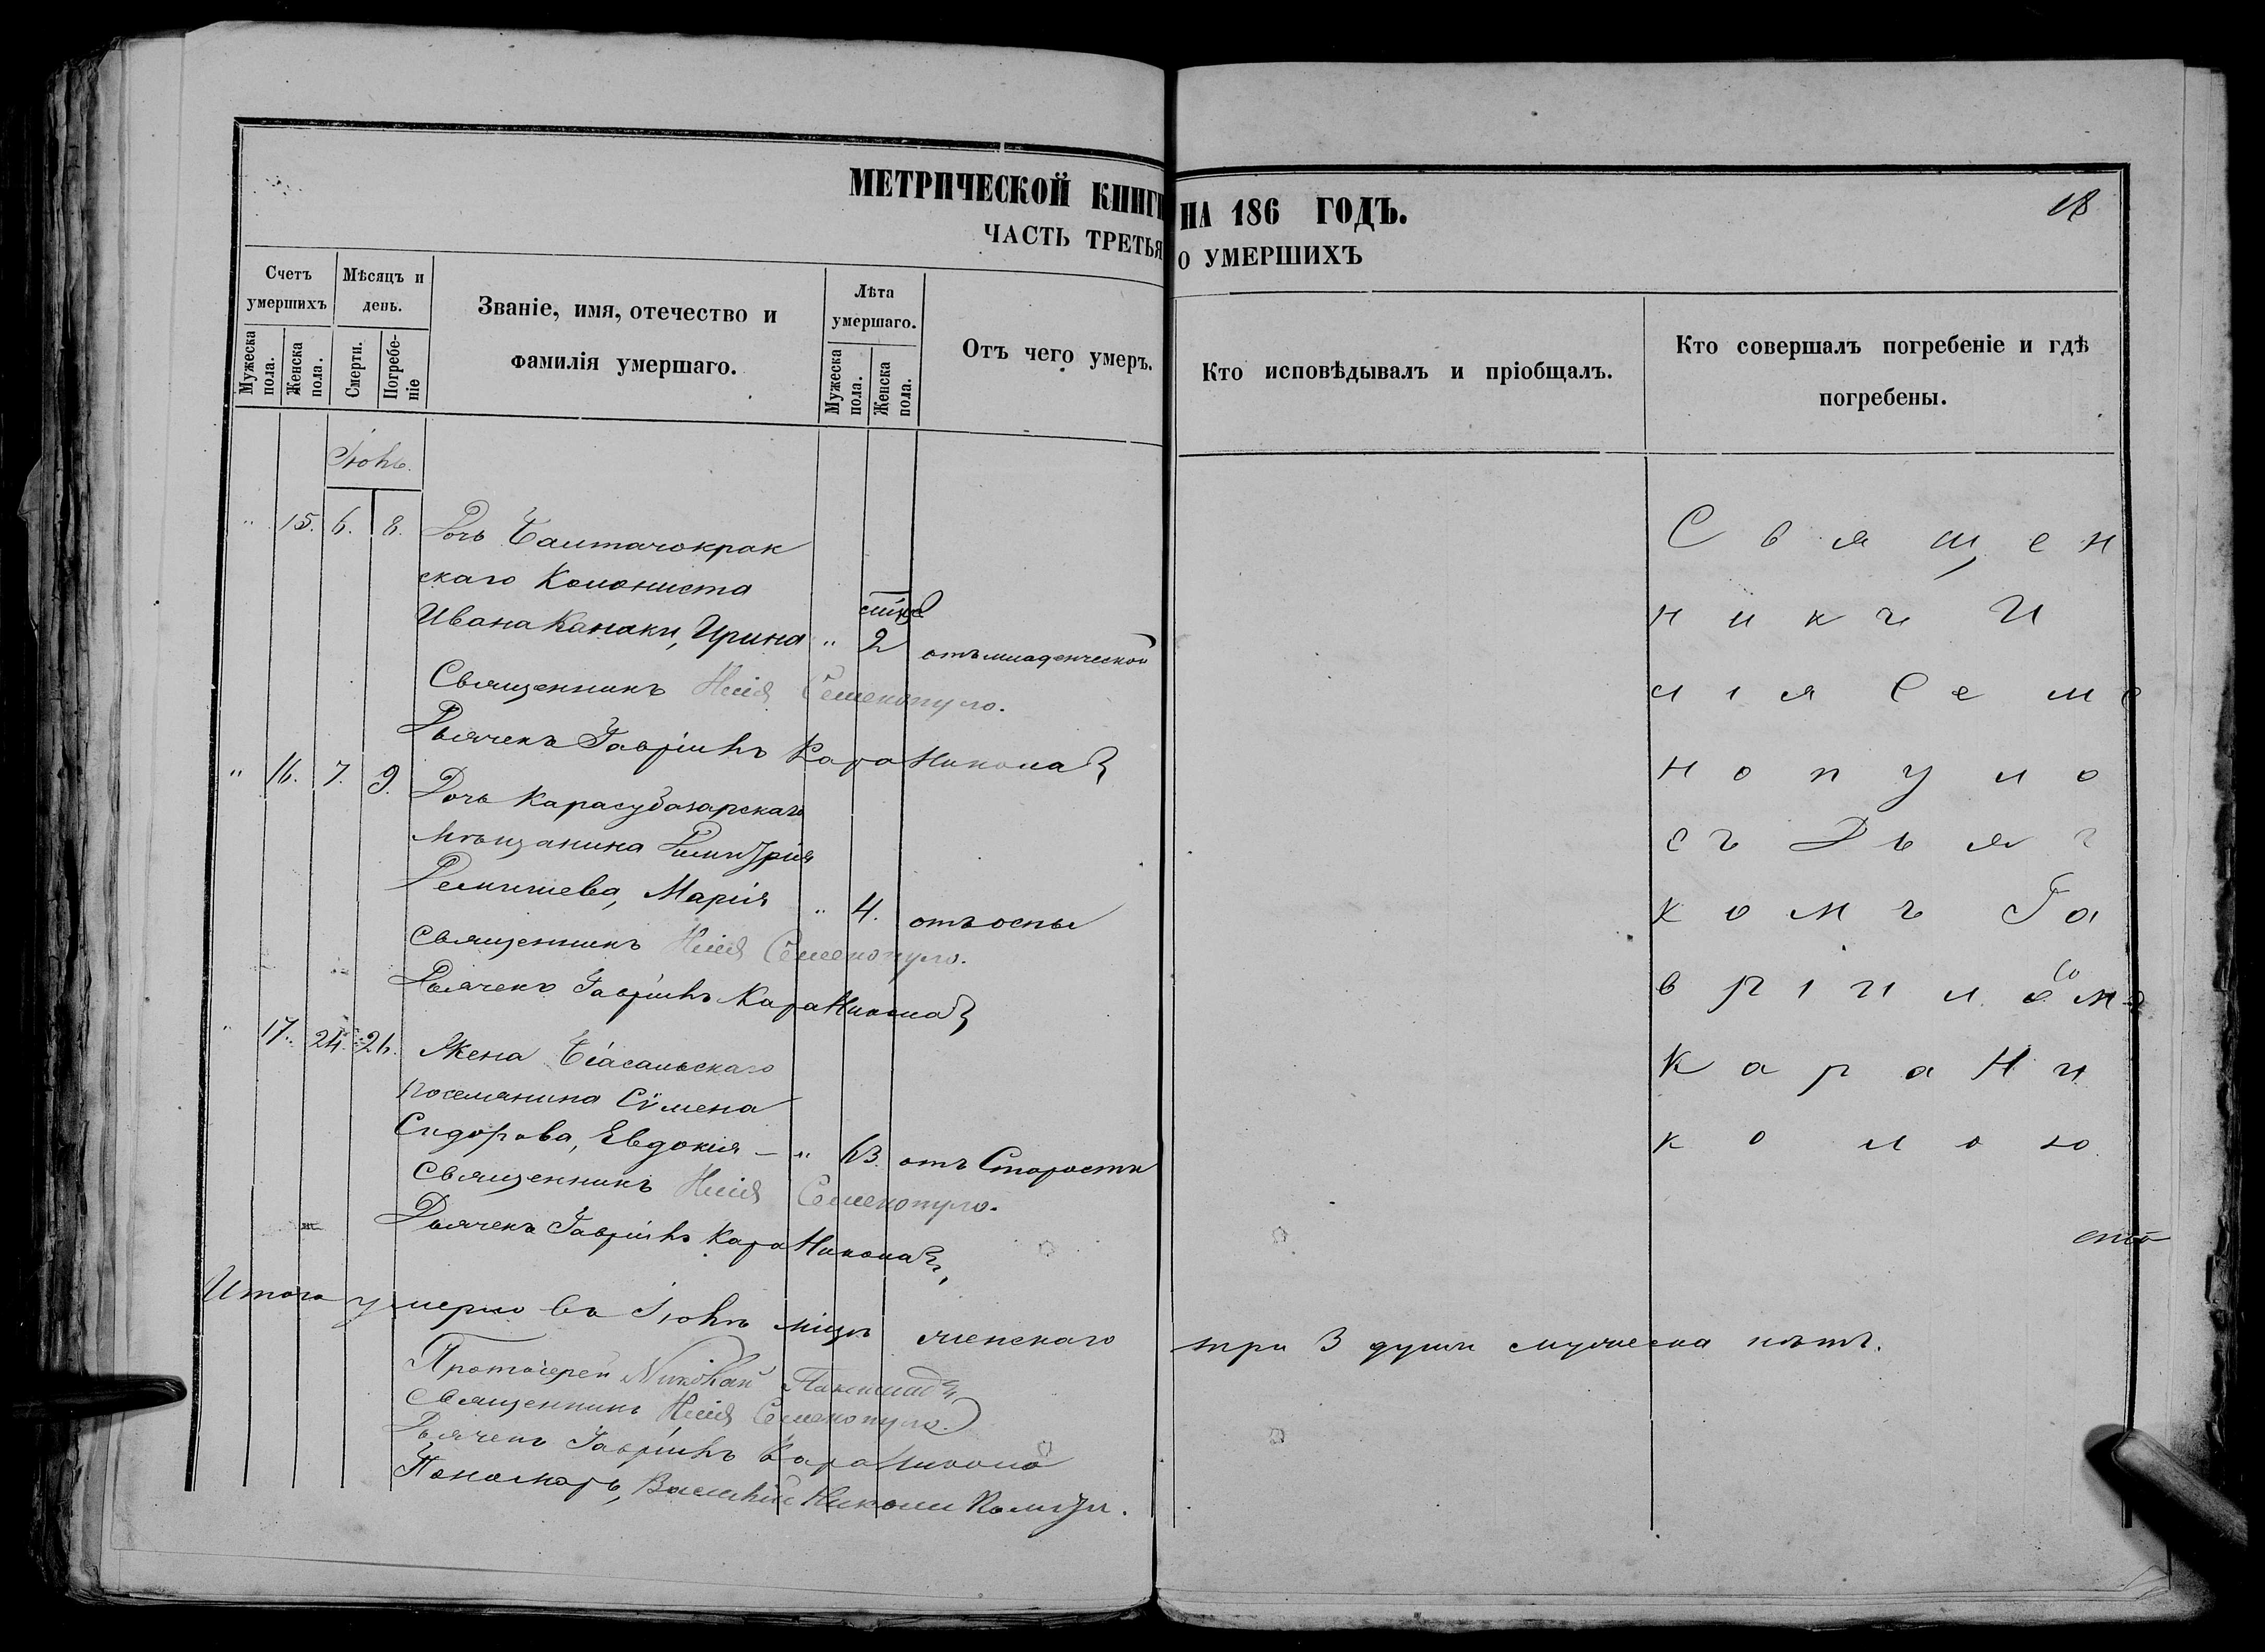 МЕТРИЧЕСКОЙ КНИГИ НА 186 ГОДЪ.
18
ЧАСТЬ ТРЕТЬЯ О УМЕРШИХЪ
Счетъ умершихъ
Мужеска пола.
Женска пола.
Мѣсяцъ и день.
Смерти.
Погребе-
ніе
Званіе, имя, отечество и
фамилія умершаго.
Лѣта умершаго.
Мужеска пола.
Женска пола.
Отъ чего умеръ.
Кто исповѣдывалъ и пріобщалъ.
Кто совершалъ погребеніе и гдѣ
погребены.
Іюнь.
" 15. 6. 8. Дочь
скаго Колониста
Ивана Канаки, Ирина " 2 отъ младенческой
Священникъ Илія Семенопуло.
Дьячекъ Гавріилъ КараНикола
" 16. 7. 9. Дочь Карасубазарскаго
Мѣщанина Димитрія
Марія " 4. отъ оспы
Священникъ Илія Семенопуло.
Дьячекъ Гавріилъ КараНикола
" 17. 24. 26. Жена Біасальскаго
поселянина Сѵмена
Сидорова, Евдокія – " 63. отъ Старости
Священникъ Илія Семенопуло.
Дьячекъ Гавріилъ КараНикола
Священ
никъ И
лія Семе
нопуло
съ Дьяч
комъ Га
вріиломъ
КараНи
колою
Итого умерло въ Іюнѣ мцѣ женскаго три 3 души мужеска нѣтъ.
Протоіерей Николай
Священникъ Илія Семенопуло
Дьячекъ Гавріилъ КараНикола
Пономарь, Василій